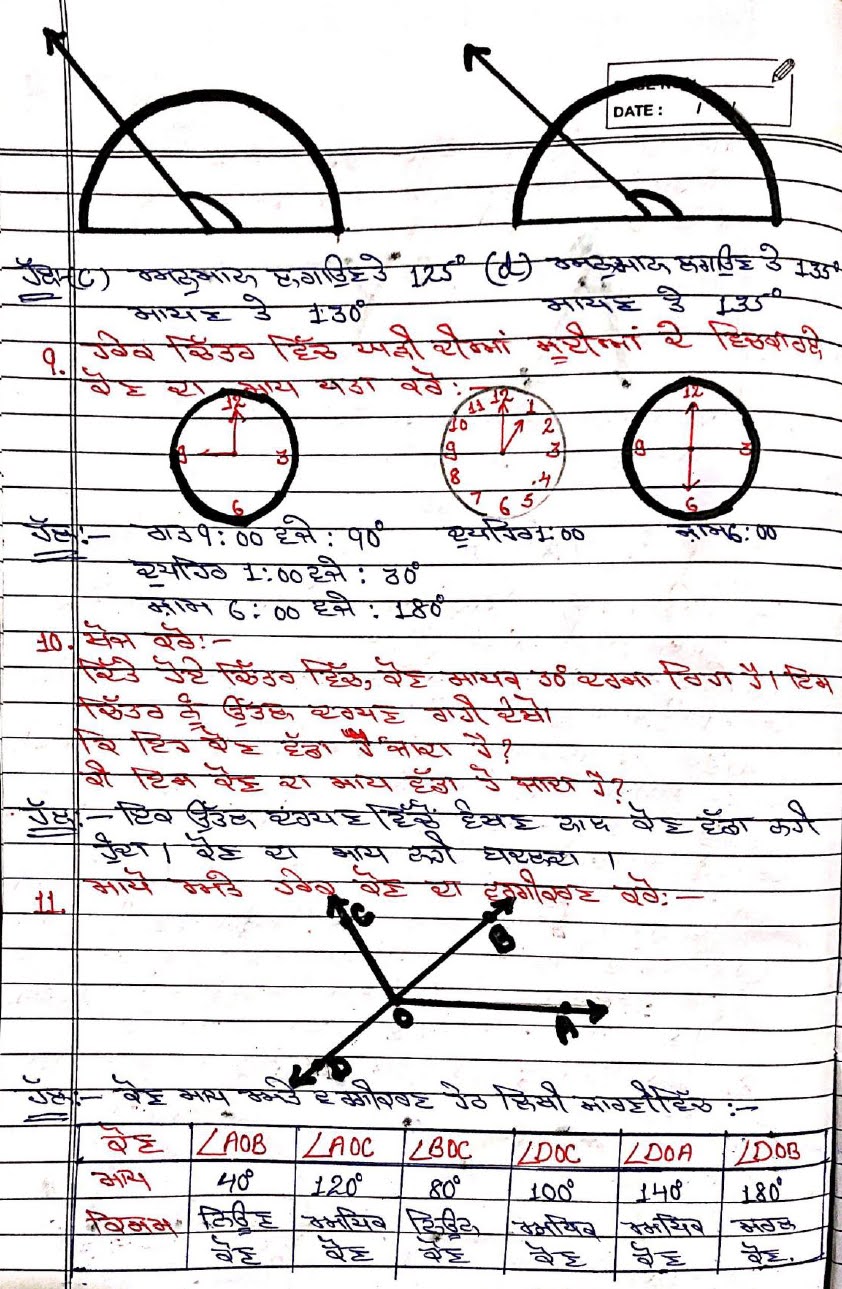 DATE: / /
ਹੱਲ:-(c) ਅਨੁਮਾਨ ਲਗਾਉਣ ਤੇ 125° (d) ਅਨੁਮਾਨ ਲਗਾਉਣ ਤੇ 135°
ਮਾਪਣ ਤੇ 130° ਮਾਪਣ ਤੇ 135°
9. ਹਰੇਕ ਚਿੱਤਰ ਵਿੱਚ ਘੜੀ ਦੀਆਂ ਸੂਈਆਂ ਦੇ ਵਿਚਕਾਰਲੇ
ਕੋਣ ਦਾ ਮਾਪ ਪਤਾ ਕਰੋ:-
12 9 3 6
12 1 2 3 4 5 6 7 8 9 10 11
12 9 3 6
ਹੱਲ:- ਰਾਤ 9:00 ਵਜੇ : 90° ਦੁਪਹਿਰ 1:00 ਸ਼ਾਮ 6:00
ਦੁਪਹਿਰ 1:00 ਵਜੇ : 30°
ਸ਼ਾਮ 6:00 ਵਜੇ : 180°
10. ਖੋਜ ਕਰੋ:-
ਦਿੱਤੇ ਹੋਏ ਚਿੱਤਰ ਵਿੱਚ, ਕੋਣ ਮਾਪਕ 30° ਦਰਸਾ ਰਿਹਾ ਹੈ। ਇਸ
ਚਿੱਤਰ ਨੂੰ ਉੱਤਲ ਦਰਪਣ ਰਾਹੀਂ ਦੇਖੋ।
ਕਿ ਇਹ ਕੋਣ ਵੱਡਾ ਹੋ ਜਾਂਦਾ ਹੈ?
ਕੀ ਇਸ ਕੋਣ ਦਾ ਮਾਪ ਵੱਡਾ ਹੋ ਜਾਂਦਾ ਹੈ?
ਹੱਲ:- ਇਕ ਉੱਤਲ ਦਰਪਣ ਵਿੱਚੋਂ ਵੇਖਣ ਨਾਲ ਕੋਣ ਵੱਡਾ ਨਹੀਂ
ਹੁੰਦਾ। ਕੋਣ ਦਾ ਮਾਪ ਨਹੀਂ ਬਦਲਦਾ।
11. ਮਾਪੋ ਅਤੇ ਹਰੇਕ ਕੋਣ ਦਾ ਵਰਗੀਕਰਣ ਕਰੋ:-
C B
O A
D
ਹੱਲ:- ਕੋਣ ਮਾਪ ਅਤੇ ਵਰਗੀਕਰਣ ਹੇਠ ਲਿਖੀ ਸਾਰਣੀ ਵਿੱਚ :-
ਕੋਣ ∠AOB ∠AOC ∠BOC ∠DOC ∠DOA ∠DOB
ਮਾਪ 40° 120° 80° 100° 140° 180°
ਕਿਸਮ ਨਿਊਣ ਅਧਿਕ ਨਿਊਨ ਅਧਿਕ ਅਧਿਕ ਸਰਲ
ਕੋਣ ਕੋਣ ਕੋਣ ਕੋਣ ਕੋਣ ਕੋਣ.